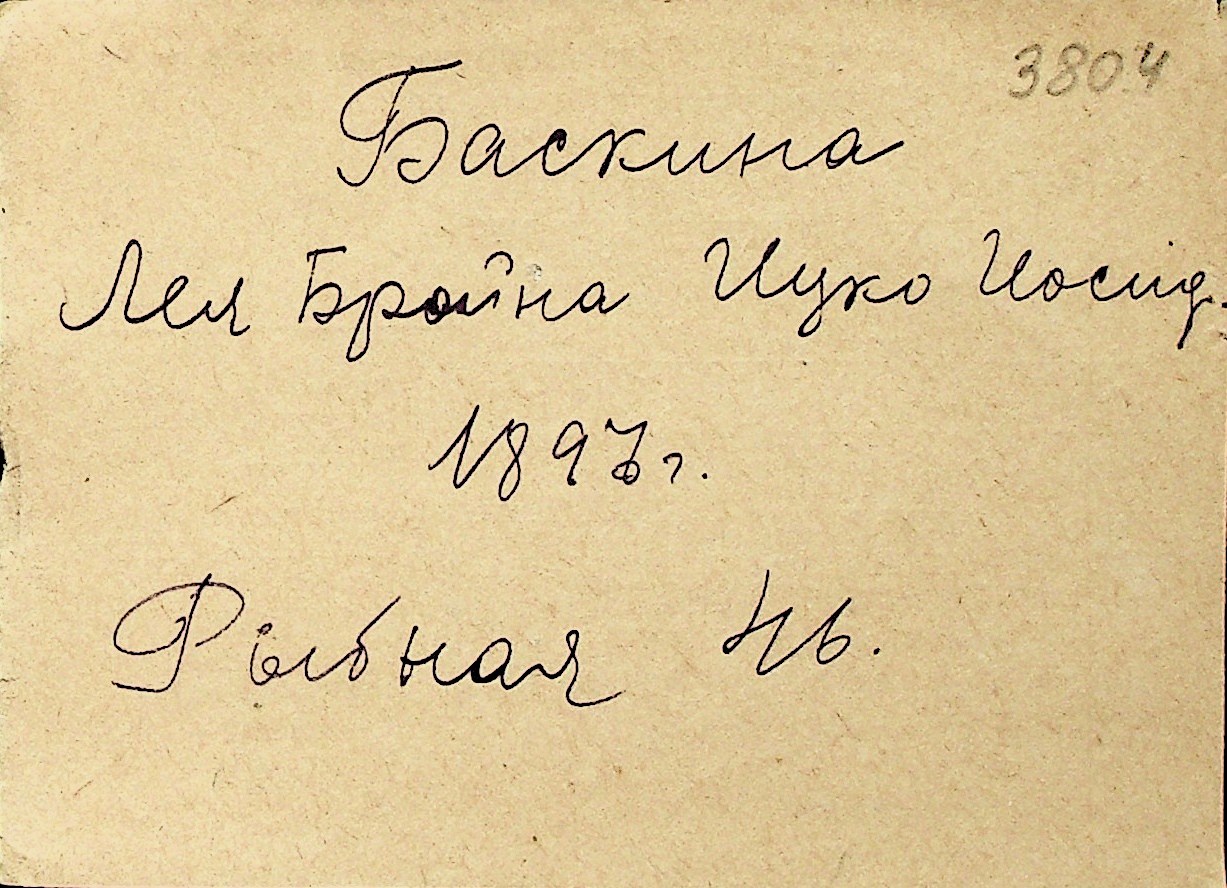 3804
Баскина
Лея Бройна Ицко Иосид
1897 г.
Рыбная 46.